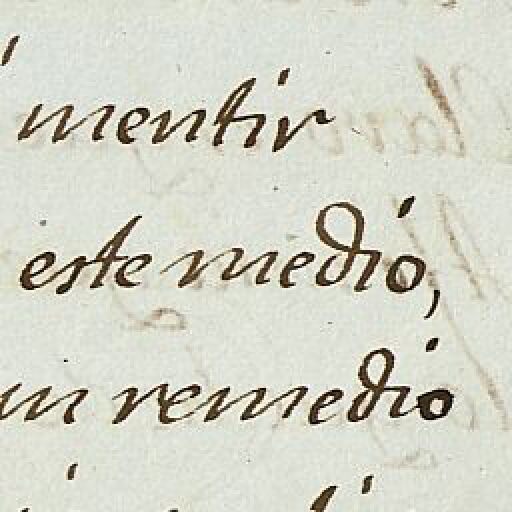 mentir
este medio,
un remedio